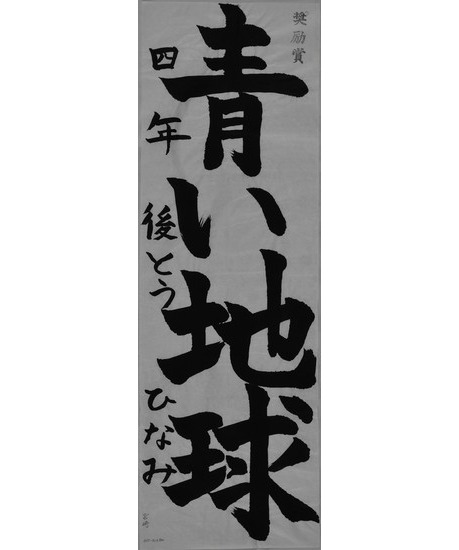 奨励賞
青い地球
四年 後とう ひなみ